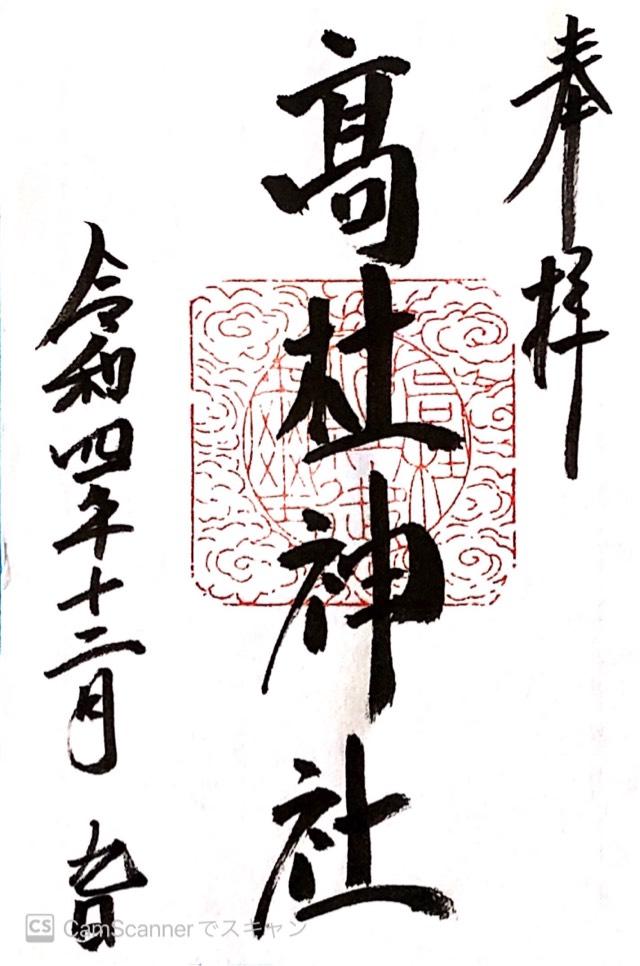 奉拝
高杜神社
令和四年十二月九日
CS CamScannerでスキャン